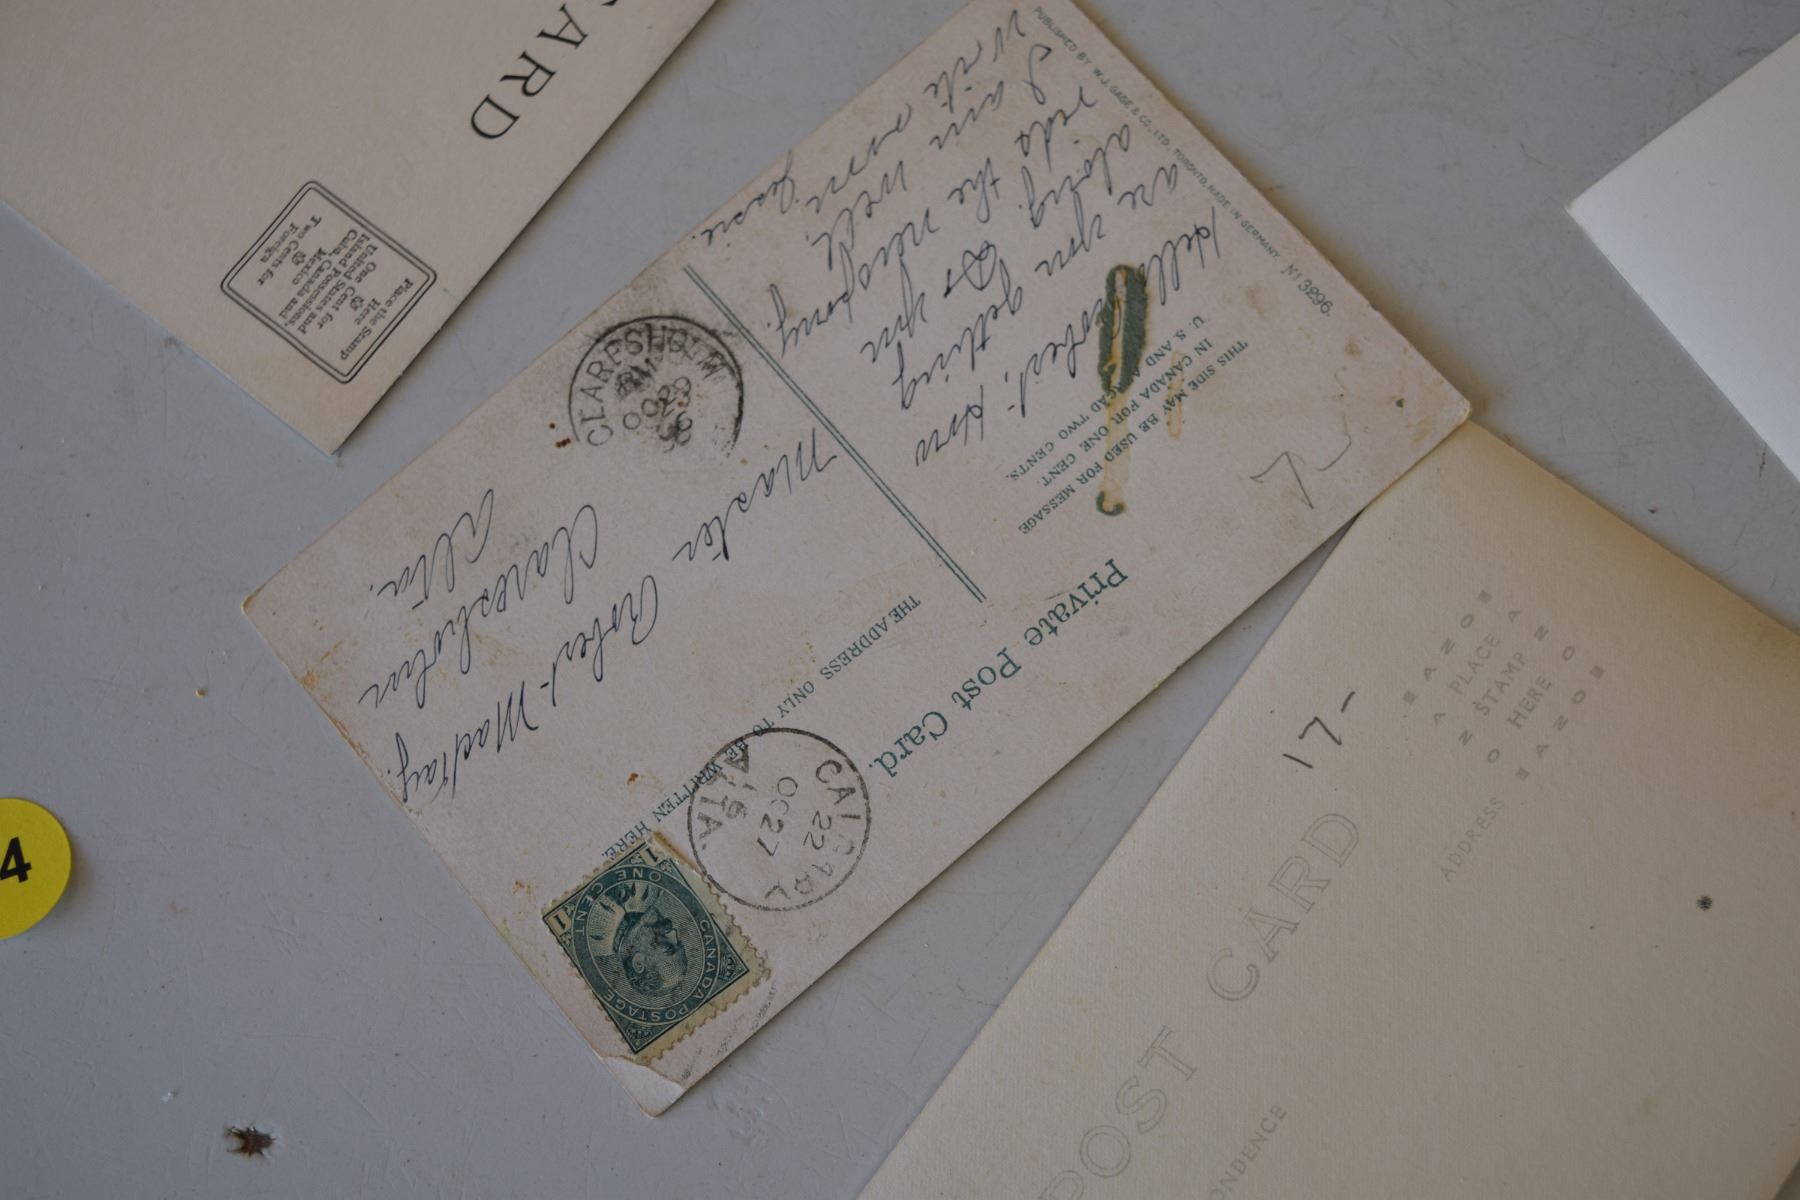 CARD
Place the Stamp
Here
One Cent for
United States and
Island Possessions,
Cuba, Canada and
Mexico
Two Cents for
Foreign
PUBLISHED BY W.J. GAGE & CO., LTD., TORONTO, MADE IN GERMANY. No 3296.
Private Post Card.
THIS SIDE MAY BE USED FOR MESSAGE
IN CANADA FOR ONE CENT.
U.S. AND TWO CENTS.
Hello Robert, How
are you getting
along. Do you
ride the
I am well.
Write
Jessie.
THE ADDRESS ONLY TO BE WRITTEN HERE.
CALGARY
22
OC 27
ALTA.
1 1
ONE CENT
CANADA POSTAGE
CLARESHOLM
OC 29
Master Robert
Claresholm
Alta.
7-
17-
POST CARD
A PLACE A
STAMP
HERE
ADDRESS
4